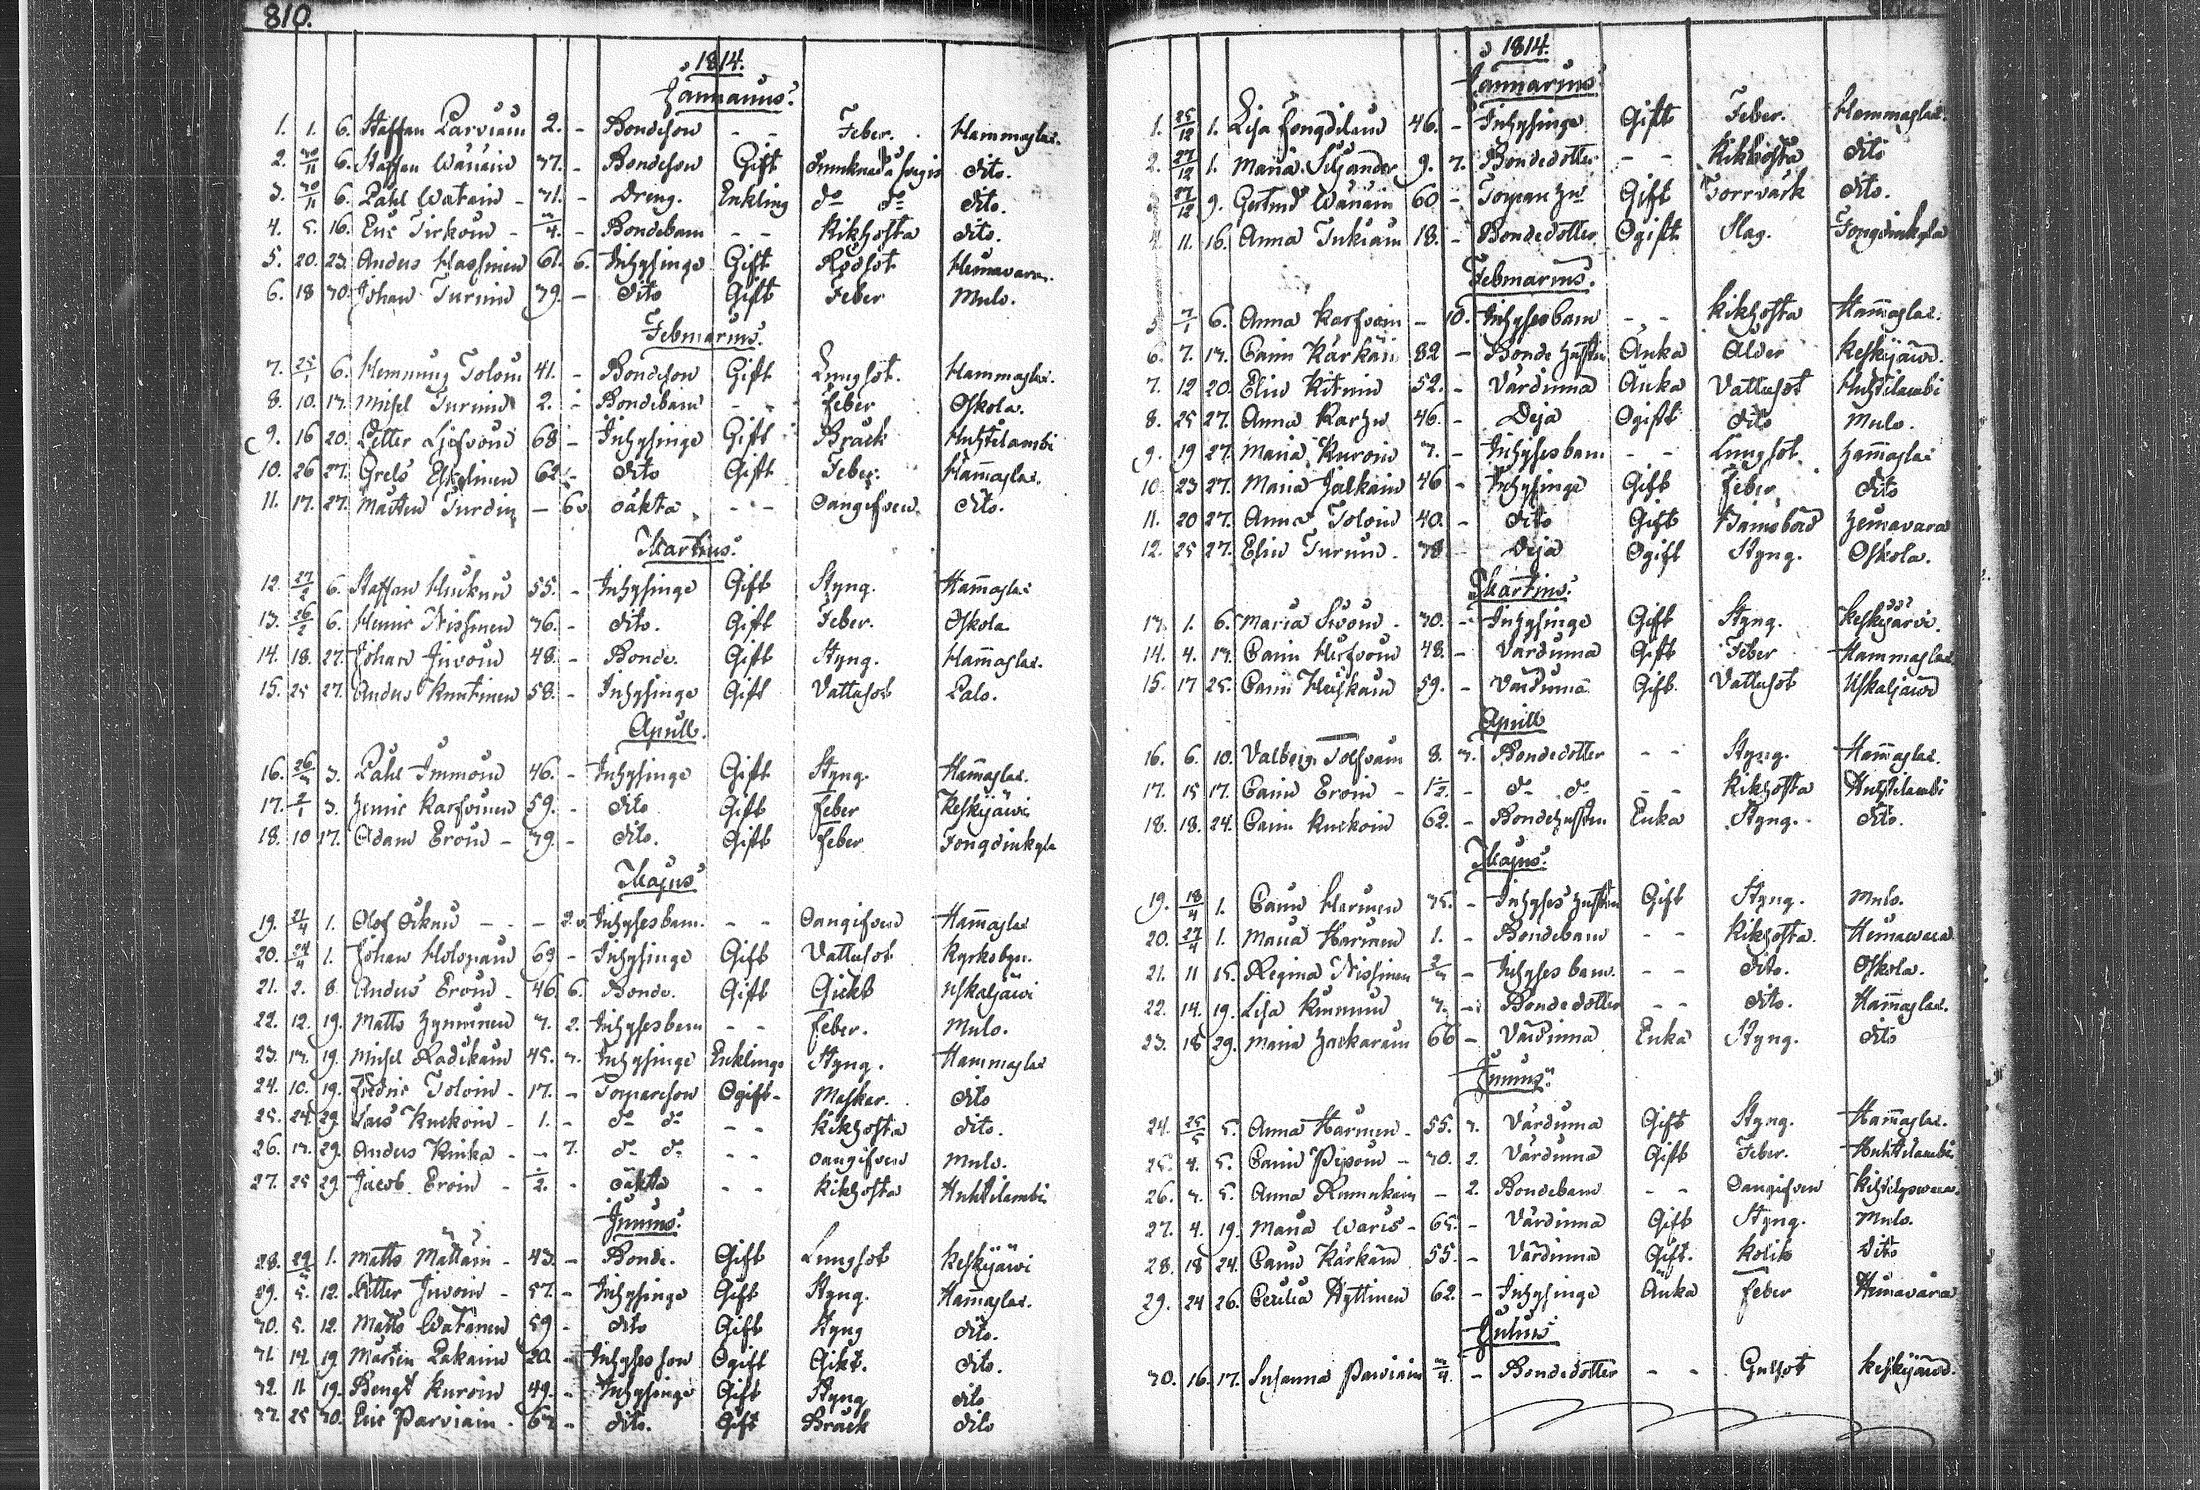 810.
1814.
Januarius.
1. 1. 6. Staffan Parviain 2. - Bondeson - - Feber. Hammaslax.
2. 30/11 6. Staffan Wänäin 37. - Bondeson Gift Drunknad à Sogio dito.
3. 30/11 6. Påhl Watain - 31. - Dreng. Enkling do do dito.
4. 5. 16. Eric Tirkoin - 3/4. - Bondebarn - - Kikhosta dito.
5. 20. 23. Anders Hassinen 61. 6. Inhysinge Gift Rödsot Heinavara.
6. 18 30. Johan Turuin 39. - dito Gift Feber Mulo.
Februarius.
7. 25/1 6. Hemming Toloin 41. - Bondeson Gift Lungsot. Hammaslax.
8. 10. 13. Michel Turuin 2. - Bondebarn - - Feber Oskola.
9. 16 20. Petter Ljefvoin 68 - Inhysinge Gift Bråck Huhtilambi
10. 26 27. Grels Eskelinen 62 - dito Gift Feber. Hamaslax.
11. 17. 27. Mårten Turdin - 6 v. oäkta - - Oangifven dito.
Martius.
12. 27/2 6. Staffan Muckuin 55. - Inhysinge Gift Styng. Hamaslax
13. 26/2 6. Henric Nissinen 36. - dito. Gift Feber. Oskola
14. 18. 27. Johan Juvoin 48. - Bonde. Gift Styng. Hamaslax.
15. 25 27. Anders Kuntinen 58. - Inhysinge Gift Vattusot Palo.
Aprill.
16. 26/3 3. Påhl Immoin 46. - Inhysinge Gift Styng. Hamaslax.
17. 2/1 3. Henric Karfvinen 59. - dito Gift Feber Keskijärvi
18. 10 17. Adam Eroin - 39. - dito. Gift Feber Jongoinkylä
Majus
19. 21/4 1. Olof Ockuin - - - 2 v. Inhysesbarn. - - Oangifven Hamaslax
20. 24/4 1. Johan Holopain 69 - Inhysinge Gift Vattusot Kyrkobyn.
21. 2. 8. Anders Eroin - 46. 6. Bonde. Gift Gickt Uskaljärvi
22. 12. 19. Matts Hyvoinen 3. 2. Inhysesbarn - - Feber. Mulo.
23. 13. 19. Michel Radikain 45. 3. Inhysinge Enkling Styng. Hammaslax
24. 10. 19. Fredric Toloin - 17. - Torparson Ogift - Maskar. dito
25. 24 29. Lars Kuckoin - 1. - do do - - Kikhosta dito.
26. 13. 29. Anders Kinka - - 7. do do - - Oangifven Mulo.
27. 25 29. Jacob Eroin - 1/2. - oäkta - - Kikhosta Huhtilambi
Junius.
28. 29/5 1. Matts Mattain - 43. - Bonde. Gift Lungsot Keskijärvi
29. 5. 12. Petter Juvoin - 57. - Inhysinge Gift Styng. Hamaslax.
30. 5. 12. Matts Watanen 59 - dito Gift Styng dito.
31. 14. 19 Mårten Pakain 20 - Inhysesson Ogift Gikt. dito.
32. 11 19. Bengt Kuroin 49. - Inhysinge Gift Styng dito
33. 25 30. Eric Parviain - 63 - dito. Gift Bråck dito
1814.
Januarius.
1. 25/12 1. Lisa Jongoilain 46. - Inhysinge Gift Feber. Hammaslax.
2. 27/12 1. Maria Siljander 9. 7. Bondedotter - - Kikhosta dito
3 27/12 9. Gertrud Wänäin 60 - Torpar Hu Gift Torrvärk dito.
4. 11. 16. Anna Tukiain 18. - Bondedotter Ogift Slag. Jongoinkylä
Februarius.
5 3/1 6. Anna Karfvain - 10. Inhysesbarn - - Kikhosta Hamaslax.
6. 7. 13. Carin Kärkäin 82 - Bonde Hustru Änka Ålder Keskijärvi.
7. 12 20. Elin Kitnin 52. - Värdinna Änka Vattusot Huhtilambi
8. 25 27. Anna Karhu 46. - Deja Ogift dito Mulo.
9. 19 27. Maria Kuroin 3. - Inhysesbarn - - Lungsot Hamaslax
10. 23 27. Maria Jalkain 46 - Inhysinge Gift Feber dito
11. 20 27. Anna Toloin 40. - dito Gift Barnsbörd Heinavara
12. 25 27. Elin Turuin. 38. - Deja Ogift Styng. Oskola.
Martius.
13. 1. 6. Maria Sivoin - 30. - Inhysinge Gift Styng. Keskijärvi.
14. 4. 13. Carin Hirfvoin 48. - Värdinna Gift Feber Hammaslax
15. 17 25. Carin Heiskain 59. - Värdinna Gift. Vattusot Uskaljärvi
Aprill
16. 6. 10. Valborg Tolfvain 8. 3. Bondedotter - - Styng. Hamaslax.
17. 15 17. Carin Eroin - 1 1/2. - do do - - Kikhosta Huhtilambi
18. 18. 24. Carin Kuckoin 62. - Bondehustru Enka Styng. dito.
Majus.
19. 18/4 1. Carin Harinen 35. - Inhyses Hustru Gift Styng. Mulo.
20. 27/4 1. Maria Harinen 1. - Bondebarn - - Kikhosta. Heinawara
21. 11 15. Regina Nissinen 2/3 - Inhyses barn. - - dito. Oskola.
22. 14. 19. Lisa Kinnuin 3. - Bondedotter - - dito. Hamaslax.
23. 18 29. Maria Hackarain 66 - Värdinna Enka Styng. dito
Junius.
24. 25/5 5. Anna Harinen - 55. 3. Värdinna Gift Styng. Hamaslax.
25. 4. 5. Carin Piipoin - 30. 2. Värdinna Gift Feber. Huhtilambi
26. 3. 5. Anna Rummukain - 2. Bondebarn - - Oangifven
27. 4. 19. Maria Waris - 65. - Värdinna Gift Styng. Mulo.
28. 18 24. Carin Kärkäin 55. - Värdinna Gift. Kolik Dito
29. 24 26. Cecilia Hyttinen 62. - Inhysinge Änka Feber Heinavara
Julius
30. 16. 17. Susanna Parviain 3/4 - Bondedotter - - Gulsot Keskijärvi.